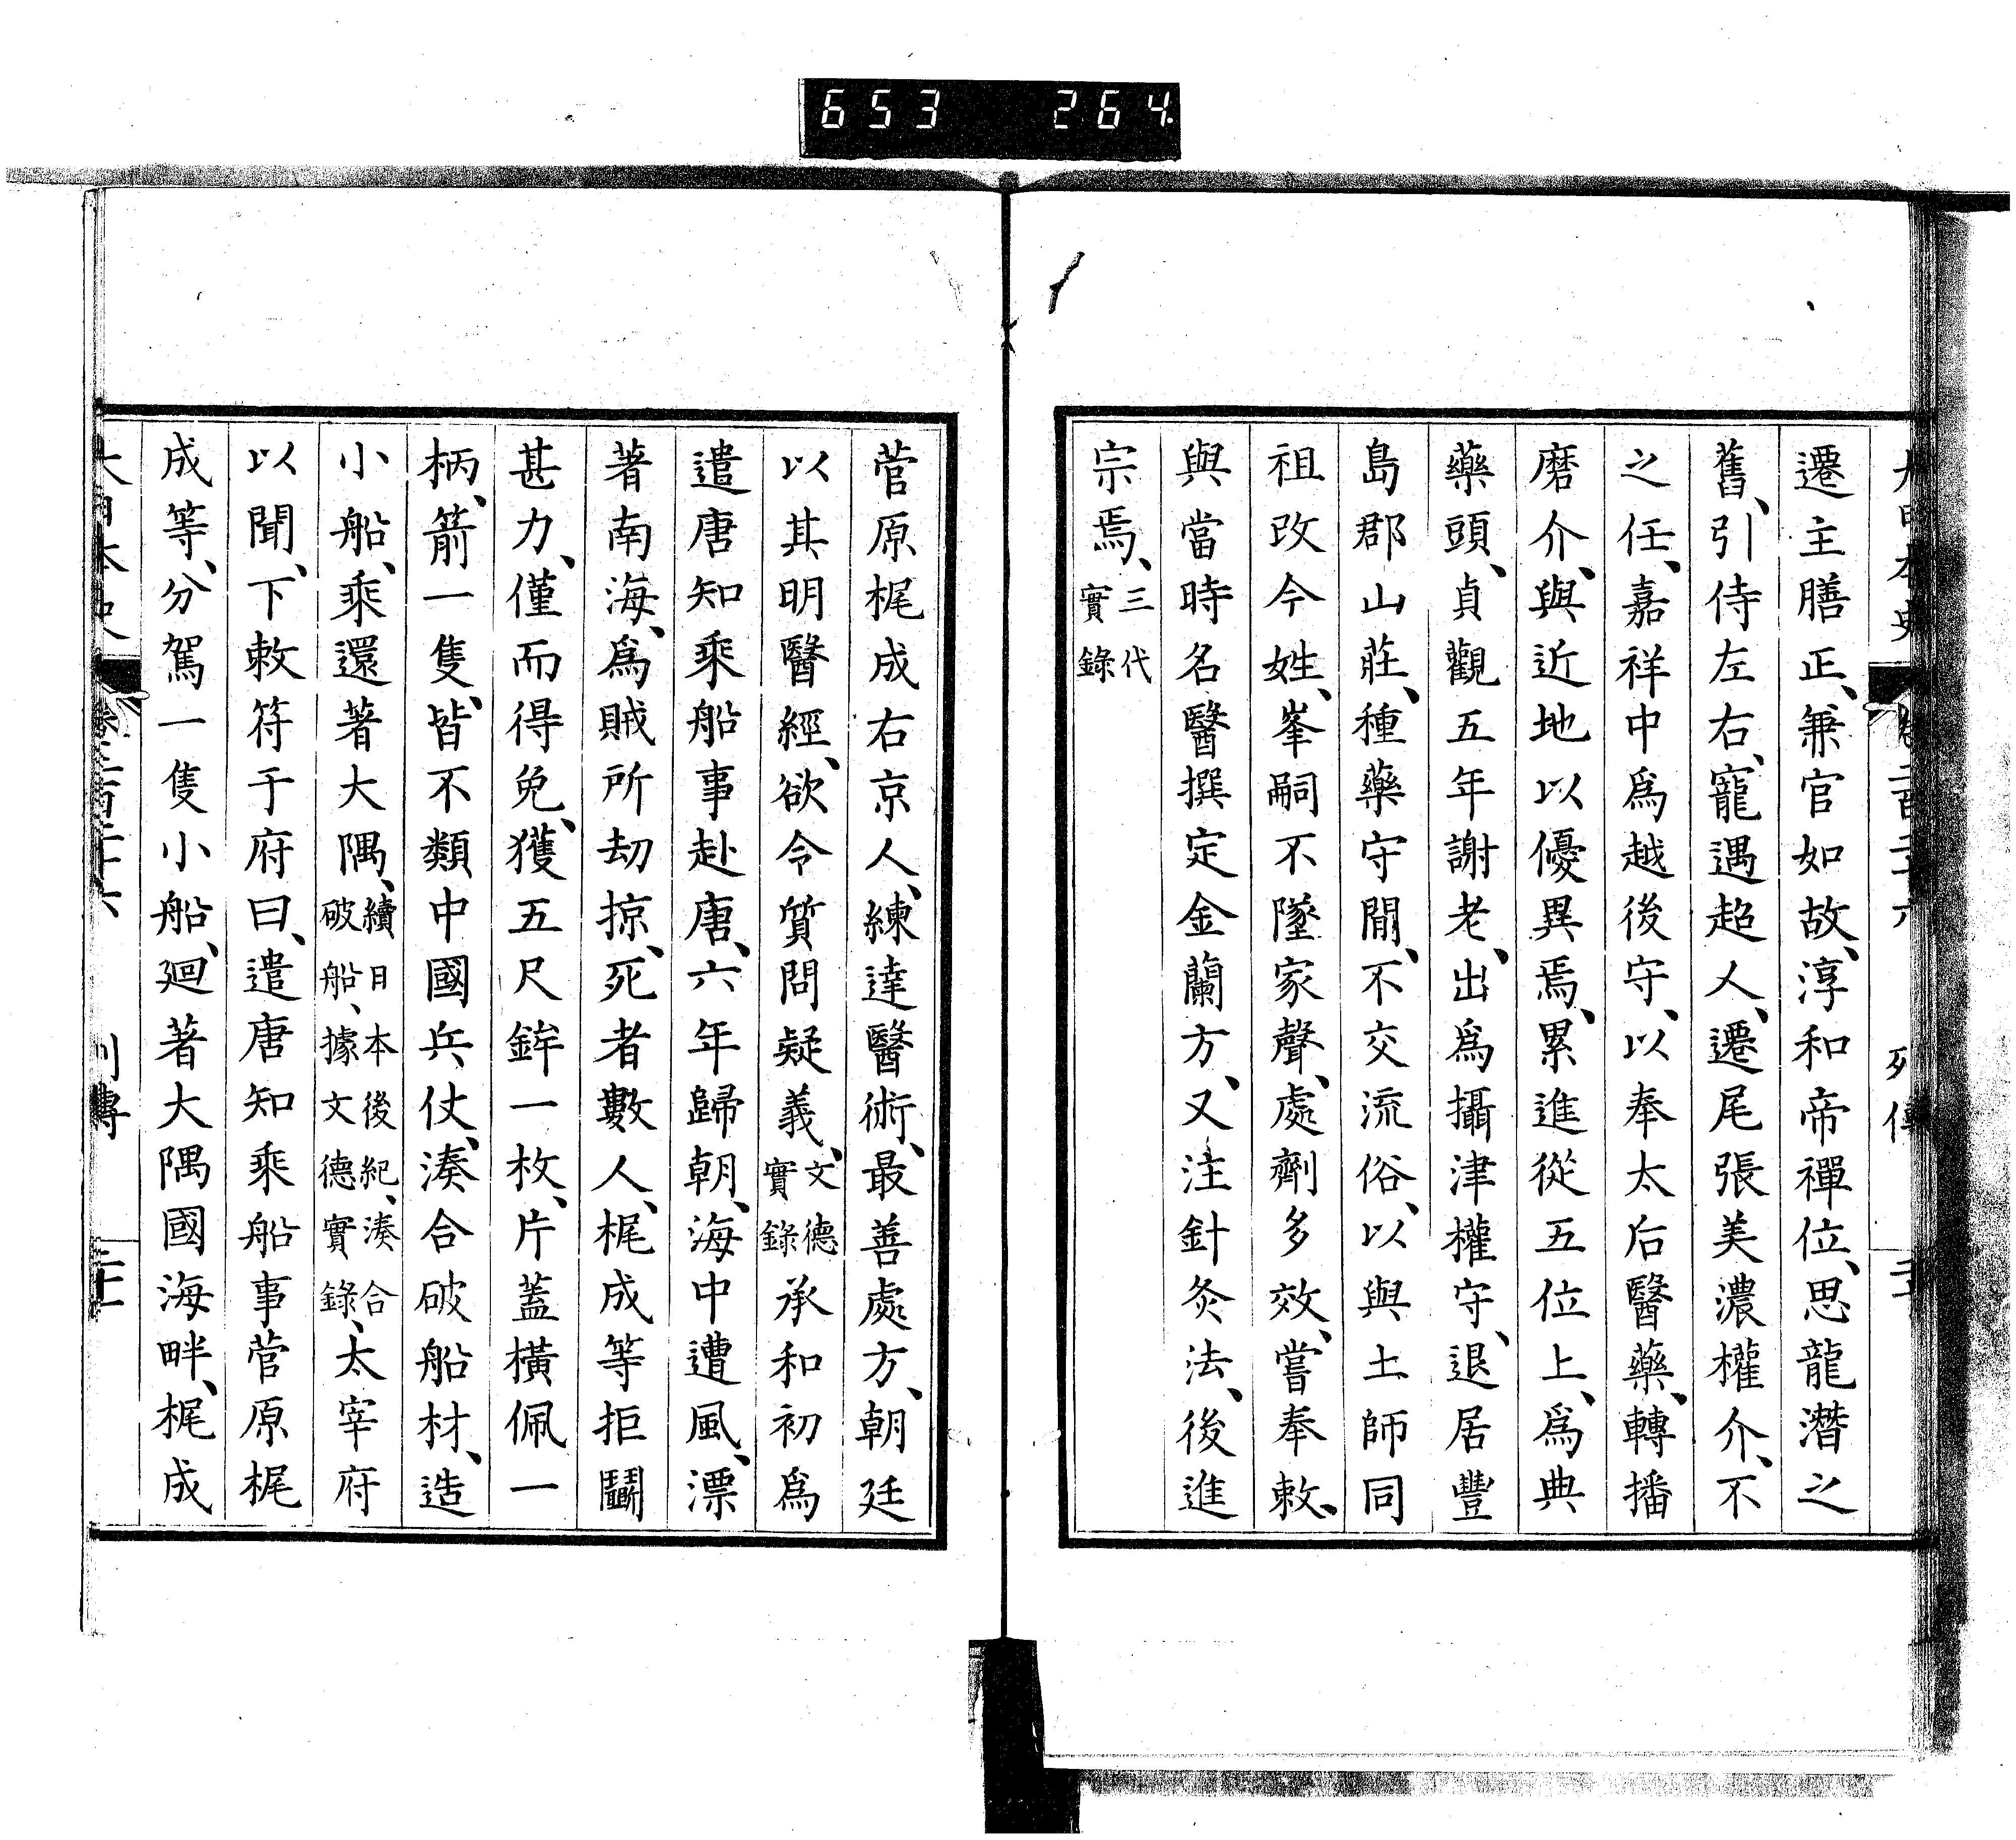 653 264
遷主膳正、兼官如故、淳和帝禪位、思龍潛之
舊、引侍左右、寵遇超人、遷尾張美濃權介、不
之任、嘉祥中爲越後守、以奉太后醫藥、轉播
磨介、與近地以優異焉、累進從五位上、爲典
藥頭、貞觀五年謝老、出爲攝津權守、退居豐
島郡山莊、種藥守閒、不交流俗、以與土師同
祖改今姓、峯嗣不墜家聲、處劑多效、嘗奉敕、
與當時名醫撰定金蘭方、又注針灸法、後進
宗焉、三代實錄
菅原梶成右京人、練達醫術、最善處方、朝廷
以其明醫經、欲令質問疑義、文德實錄承和初爲
遣唐知乘船事赴唐、六年歸朝、海中遭風、漂
著南海、爲賊所劫掠、死者數人、梶成等拒鬬
甚力、僅而得免、獲五尺鉾一枚、片蓋橫佩一
柄、箭一隻、皆不類中國兵仗、湊合破船材、造
小船、乘還著大隅、續日本後紀、湊合破船、據文德實錄、太宰府
以聞、下敕符于府曰、遣唐知乘船事菅原梶
成等、分駕一隻小船、廻著大隅國海畔、梶成
大日本史 卷二百二十六 列傳